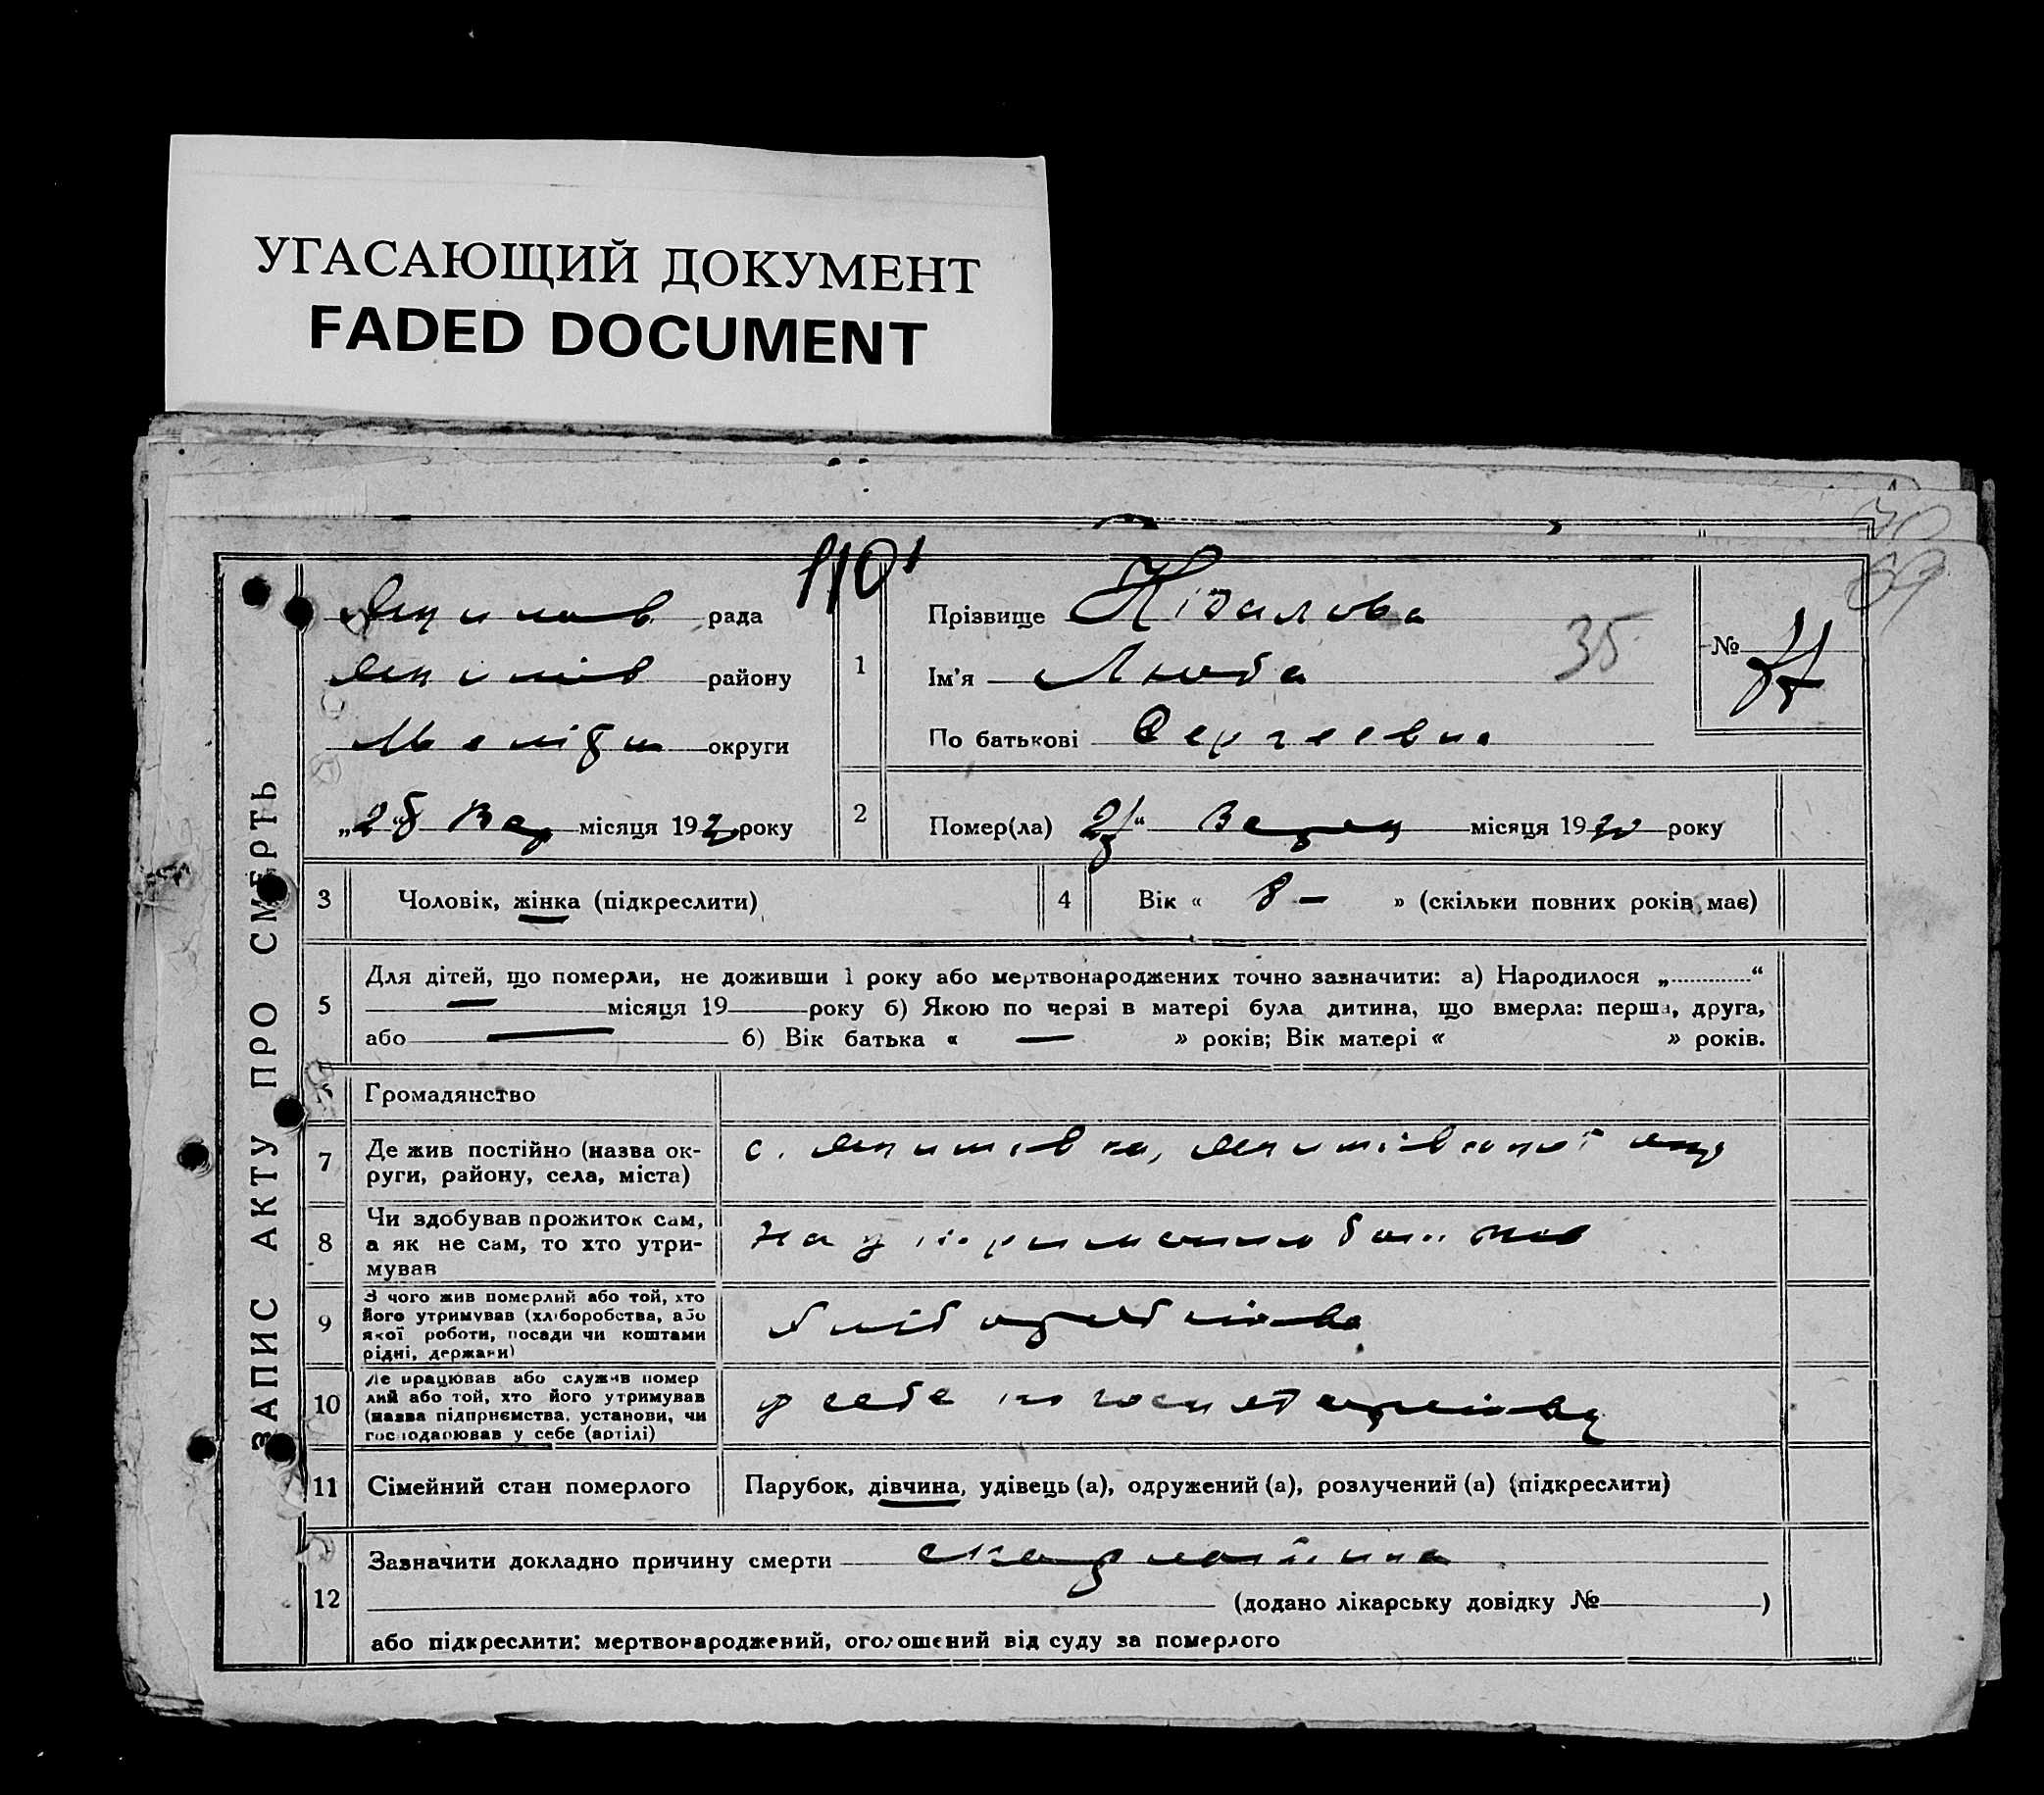 УГАСАЮЩИЙ ДОКУМЕНТ
FADED DOCUMENT
ЗАПИС АКТУ ПРО СМЕРТЬ
110
рада
району
округи
місяця 19 року
1
Прізвище
Ім'я Люба
По батькові Сергеевна
35
№
69
2
Помер(ла) місяця 1930 року
3 Чоловік, жінка (підкреслити)
4 Вік « 8 – » (скільки повних років має)
5
Для дітей, що померли, не доживши 1 року або мертвонароджених точно зазначити: а) Народилося „............“
— місяця 19 року б) Якою по черзі в матері була дитина, що вмерла: перша, друга,
або — б) Вік батька « — » років; Вік матері « » років.
6 Громадянство
7
Де жив постійно (назва ок-
руги, району, села, міста)
с. Якимівка, Якимівської
8
Чи здобував прожиток сам,
а як не сам, то хто утри-
мував
На утриманню батьков
9
З чого жив померлий або той, хто
його утримував (хліборобства, або
якої роботи, посади чи коштами
рідні, держави)
Хліборобства
10
Де працював або служив помер
лий або той, хто його утримував
(назва підприємства, установи, чи
господарював у себе (артілі)
у себе по господарству
11 Сімейний стан померлого
Парубок, дівчина, удівець (а), одружений (а), розлучений (а) (підкреслити)
12
Зазначити докладно причину смерти скарлатина
(додано лікарську довідку № )
або підкреслити: мертвонароджений, оголошений від суду за померлого